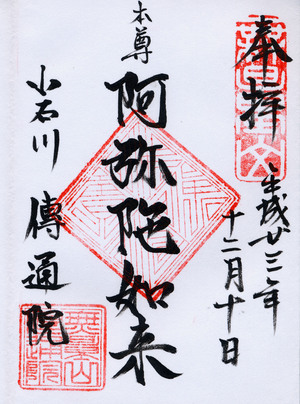 奉拝
平成廿三年
十二月十日
本尊
阿弥陀如来
小石川 傳通院
無量山